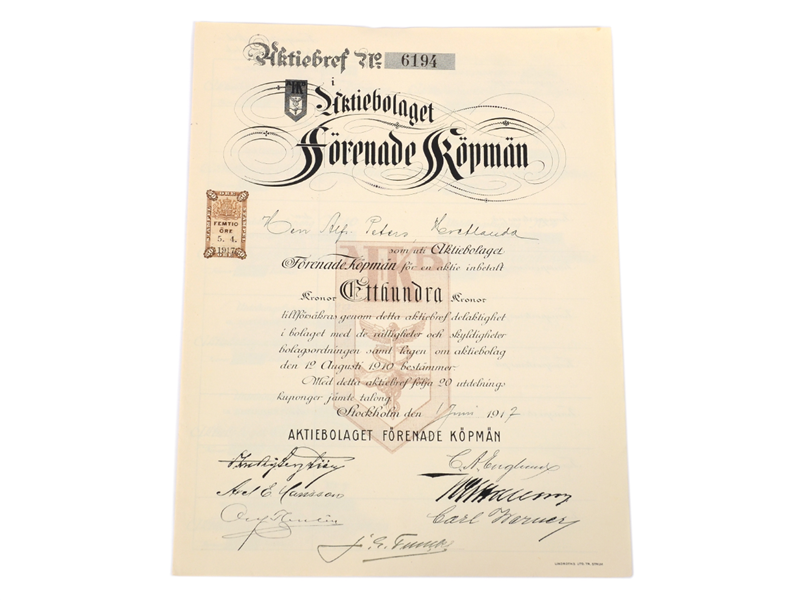 Aktiebref No 6194
i
Aktiebolaget
Förenade Köpmän
FEMTIO
ÖRE
5. 4.
1917
Herr Alfr. Peters,
som uti Aktiebolaget
Förenade Köpmän för en aktie inbetalt
Kronor Etthundra Kronor
tillförsäkras genom detta aktiebref delaktighet
i bolaget med de rättigheter och skyldigheter
bolagsordningen samt lagen om aktiebolag
den 12 Augusti 1910 bestämmer.
Med detta aktiebref följa 20 utdelnings
kuponger jämte talong.
Stockholm den 1 Juni 1917
AKTIEBOLAGET FÖRENADE KÖPMÄN
C. A. Englund
Axel E. Hansson
Carl Werner
J. G.